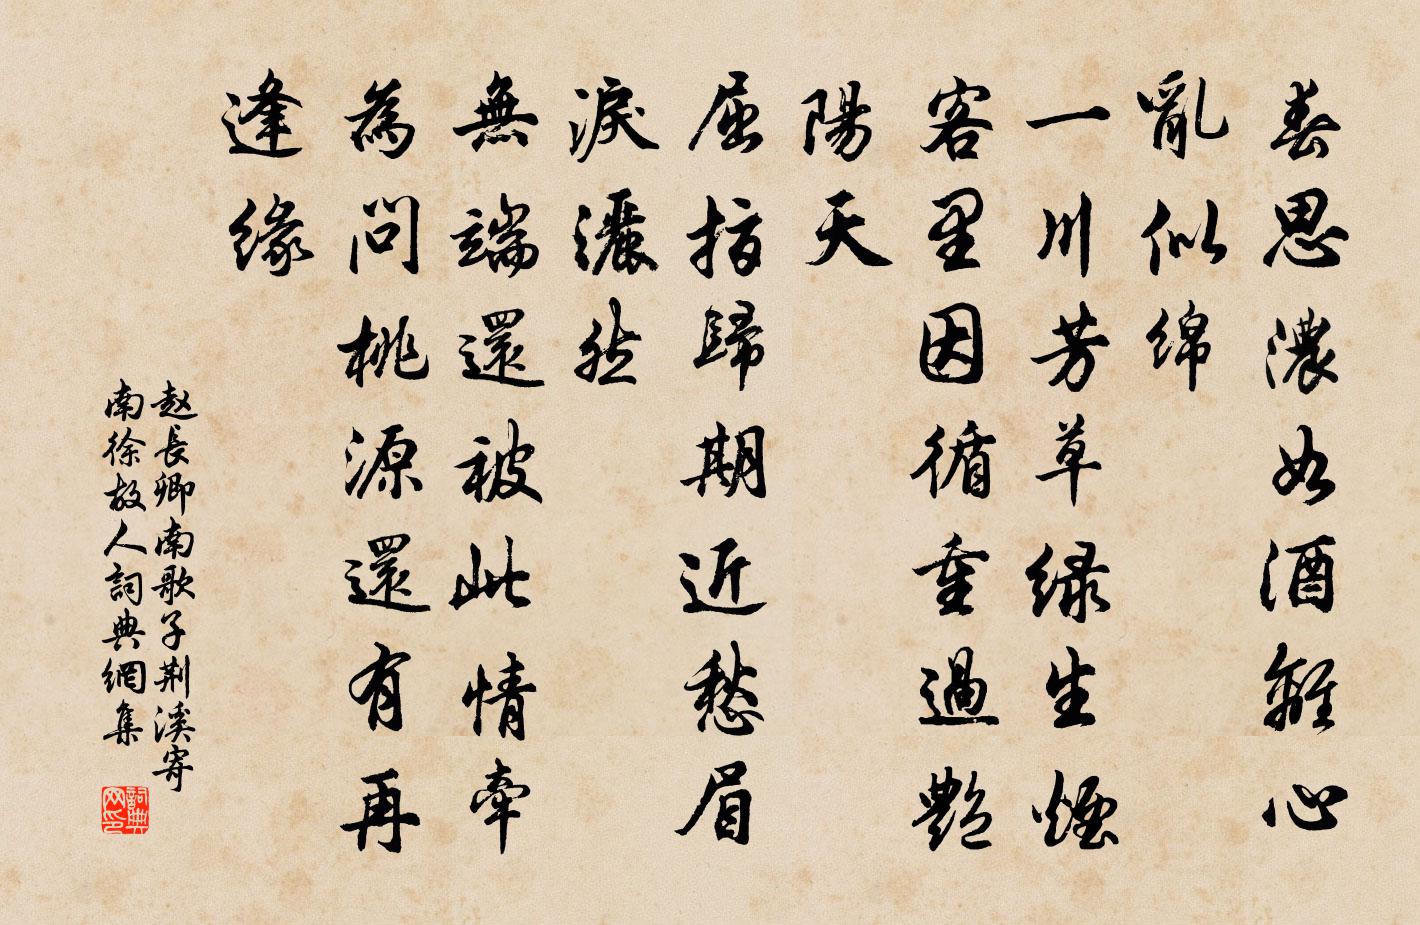 春思濃如酒離心
亂似綿
一川芳草綠生煙
客里因循重過艷
陽天
屈指歸期近愁眉
淚灑然
無端還被此情牽
為問桃源還有再
逢緣
赵長卿南歌子荆溪寄
南徐故人詞典網集
詞典
网印